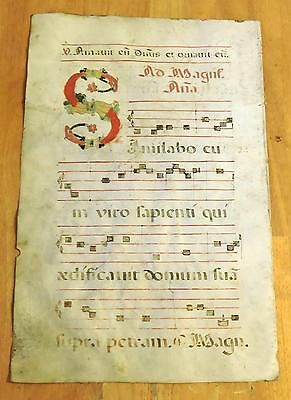 V. Amauit eū Dn̄s et ornauit eū.
Ad Magnif.
Aña.
Similabo eu
m viro sapienti qui
ædificauit domum suā
supra petram. ps. Magn.